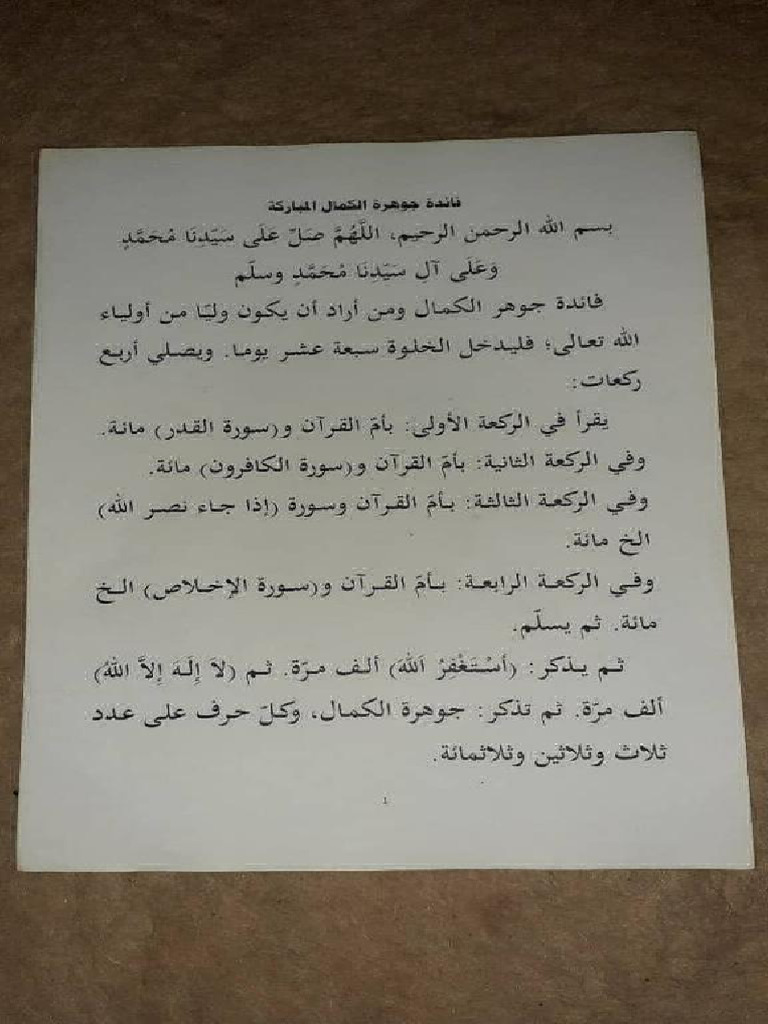 فائدة جوهرة الكمال المباركة
بسم الله الرحمن الرحيم، اللَّهُمَّ صَلِّ عَلَى سَيِّدِنَا مُحَمَّدٍ
وَعَلَى آلِ سَيِّدِنَا مُحَمَّدٍ وسلّم
فائدة جوهر الكمال ومن أراد أن يكون وليّا من أولياء
الله تعالى؛ فليدخل الخلوة سبعة عشر يوما. ويصلي أربع
ركعات:
يقرأ في الركعة الأولى: بأمّ القرآن و(سورة القدر) مائة.
وفي الركعة الثانية: بأمّ القرآن و(سورة الكافرون) مائة.
وفي الركعة الثالثة: بأمّ القرآن وسورة (إذا جاء نصر الله)
الخ مائة.
وفي الركعة الرابعة: بأمّ القرآن و(سورة الإخلاص) الخ
مائة. ثم يسلّم.
ثم يذكر: (أَسْتَغْفِرُ اَللهَ) ألف مرّة. ثم (لاَ إِلَهَ إِلاَّ اللهُ)
ألف مرّة. ثم تذكر: جوهرة الكمال، وكلّ حرف على عدد
ثلاث وثلاثين وثلاثمائة.
1